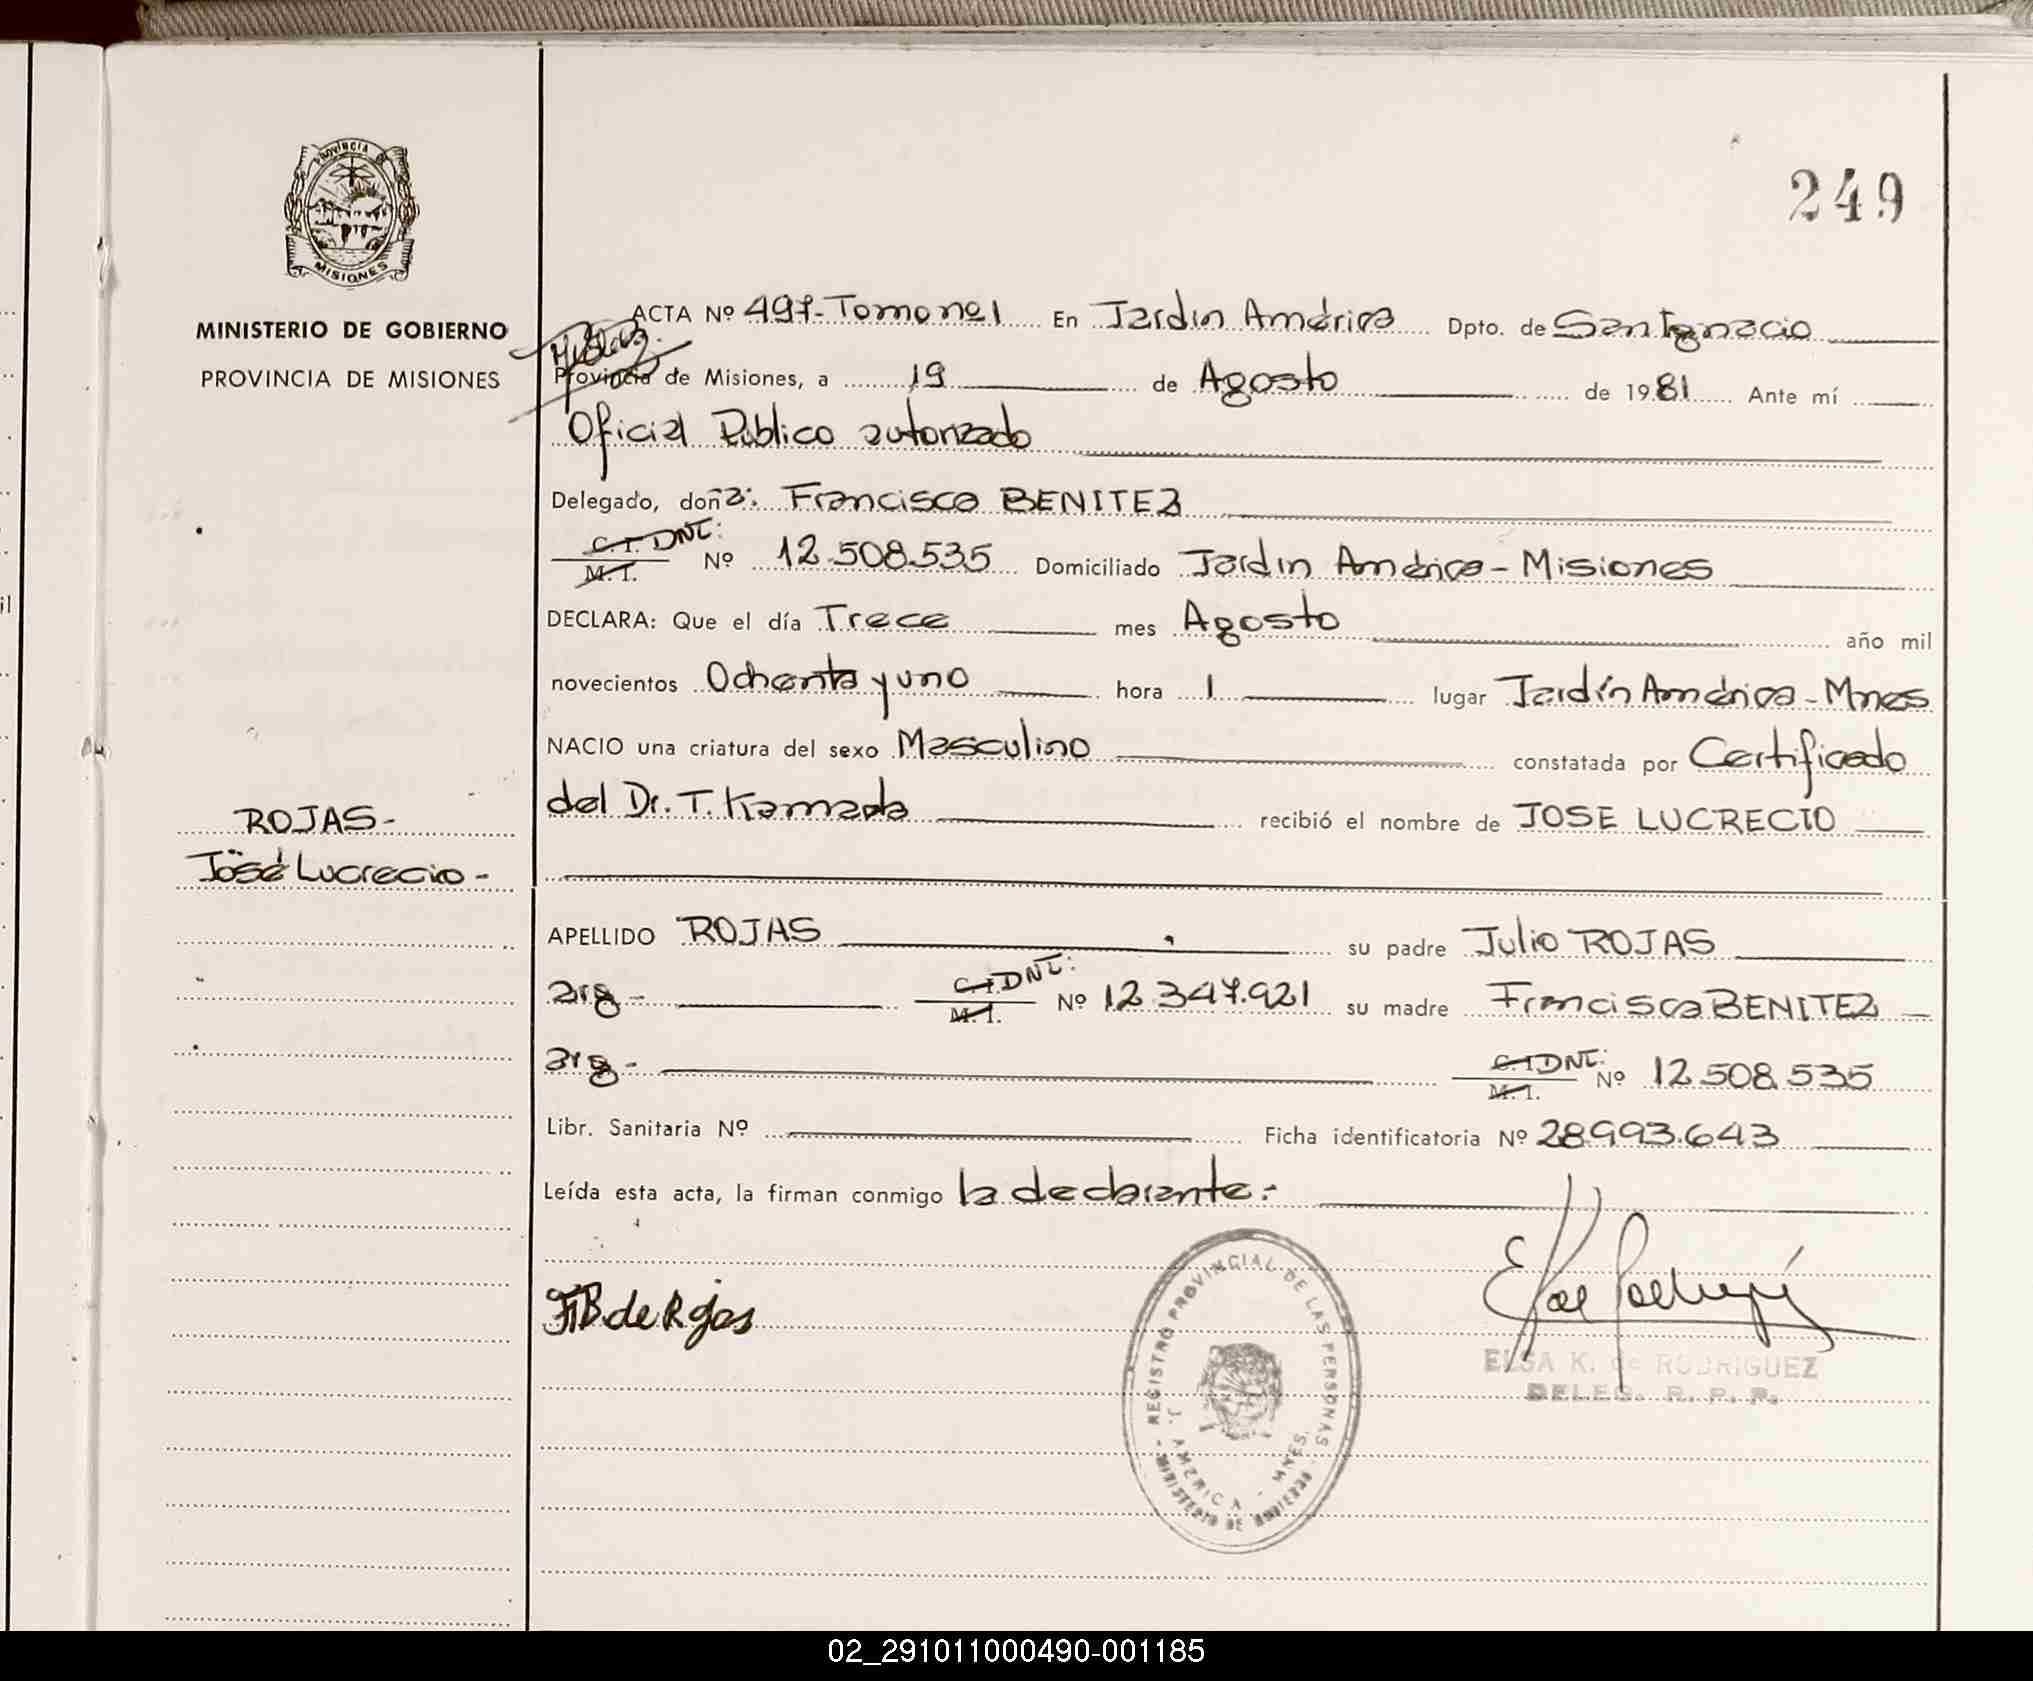 249
PROVINCIA DE
MISIONES
MINISTERIO DE GOBIERNO
PROVINCIA DE MISIONES
ROJAS-
José Lucrecio-
ACTA Nº 497-Tomo nº1 En Jardín América Dpto. de San Ignacio
Provincia de Misiones, a 19 de Agosto de 1981 Ante mí
Oficial Público autorizado
Delegado, doña: Francisca BENITEZ
C.I. DNI:
M.I. Nº 12.508.535 Domiciliado Jardín América - Misiones
DECLARA: Que el día Trece mes Agosto año mil
novecientos Ochenta y uno hora 1 lugar Jardín América - Mnes
NACIO una criatura del sexo Masculino constatada por Certificado
del Dr. T. Kamada recibió el nombre de JOSE LUCRECIO
APELLIDO ROJAS su padre Julio ROJAS
arg- C.I. DNI: M.I. Nº 12.347.921 su madre Francisca BENITEZ
arg- C.I. DNI: M.I. Nº 12.508.535
Libr. Sanitaria Nº Ficha identificatoria Nº 28.993.643
Leída esta acta, la firman conmigo la declarante.-
F.B. de Rojas
REGISTRO PROVINCIAL DE LAS PERSONAS
J. AMERICA - MNES.
MINISTERIO DE GOBIERNO
ELSA K. de RODRIGUEZ
DELEG. R. P. P.
02_291011000490-001185